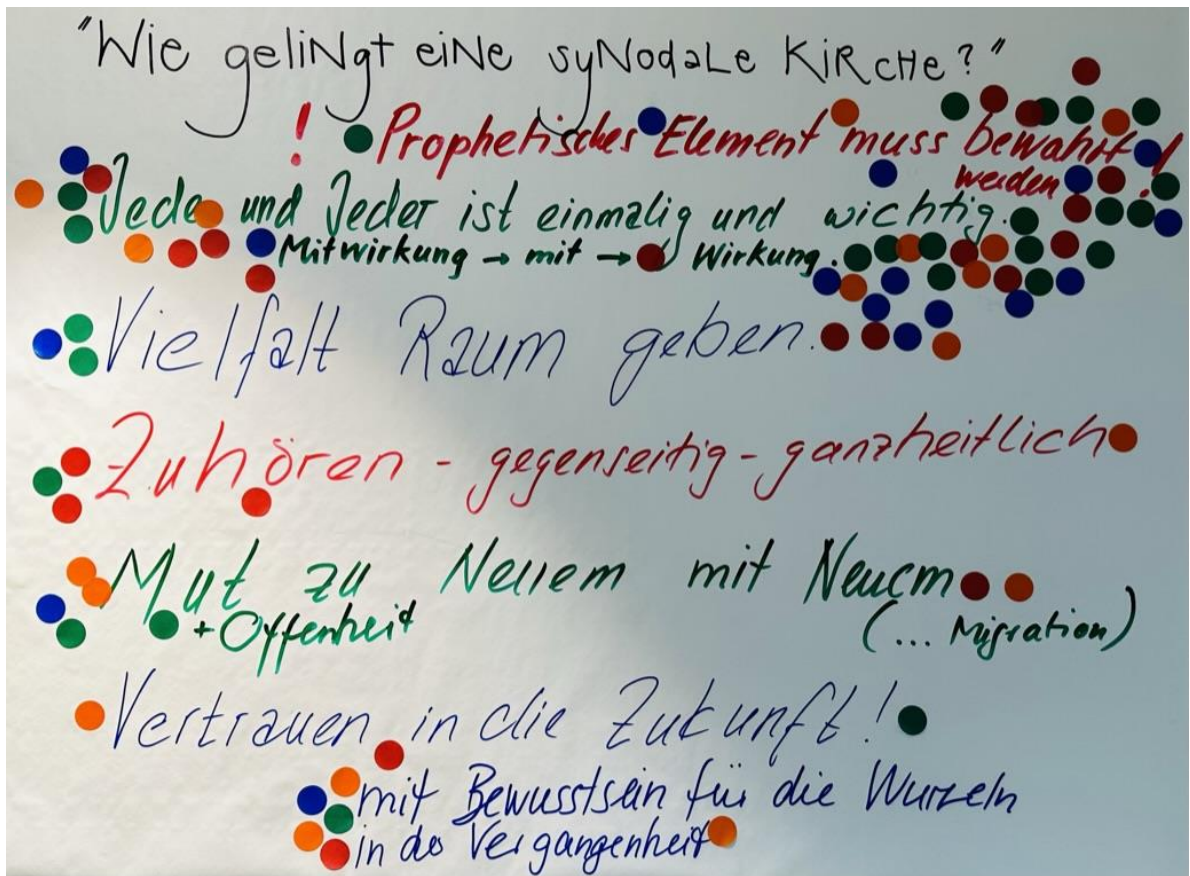 "Wie gelingt eine synodale Kirche?"
! Prophetisches Element muss bewahrt
werden!
Jede und Jeder ist einmalig und wichtig.
Mitwirkung → mit → Wirkung.
Vielfalt Raum geben.
Zuhören - gegenseitig - ganzheitlich
Mut zu Neuem mit Neuem
+ Offenheit (... Migration)
Vertrauen in die Zukunft!
mit Bewusstsein für die Wurzeln
in der Vergangenheit